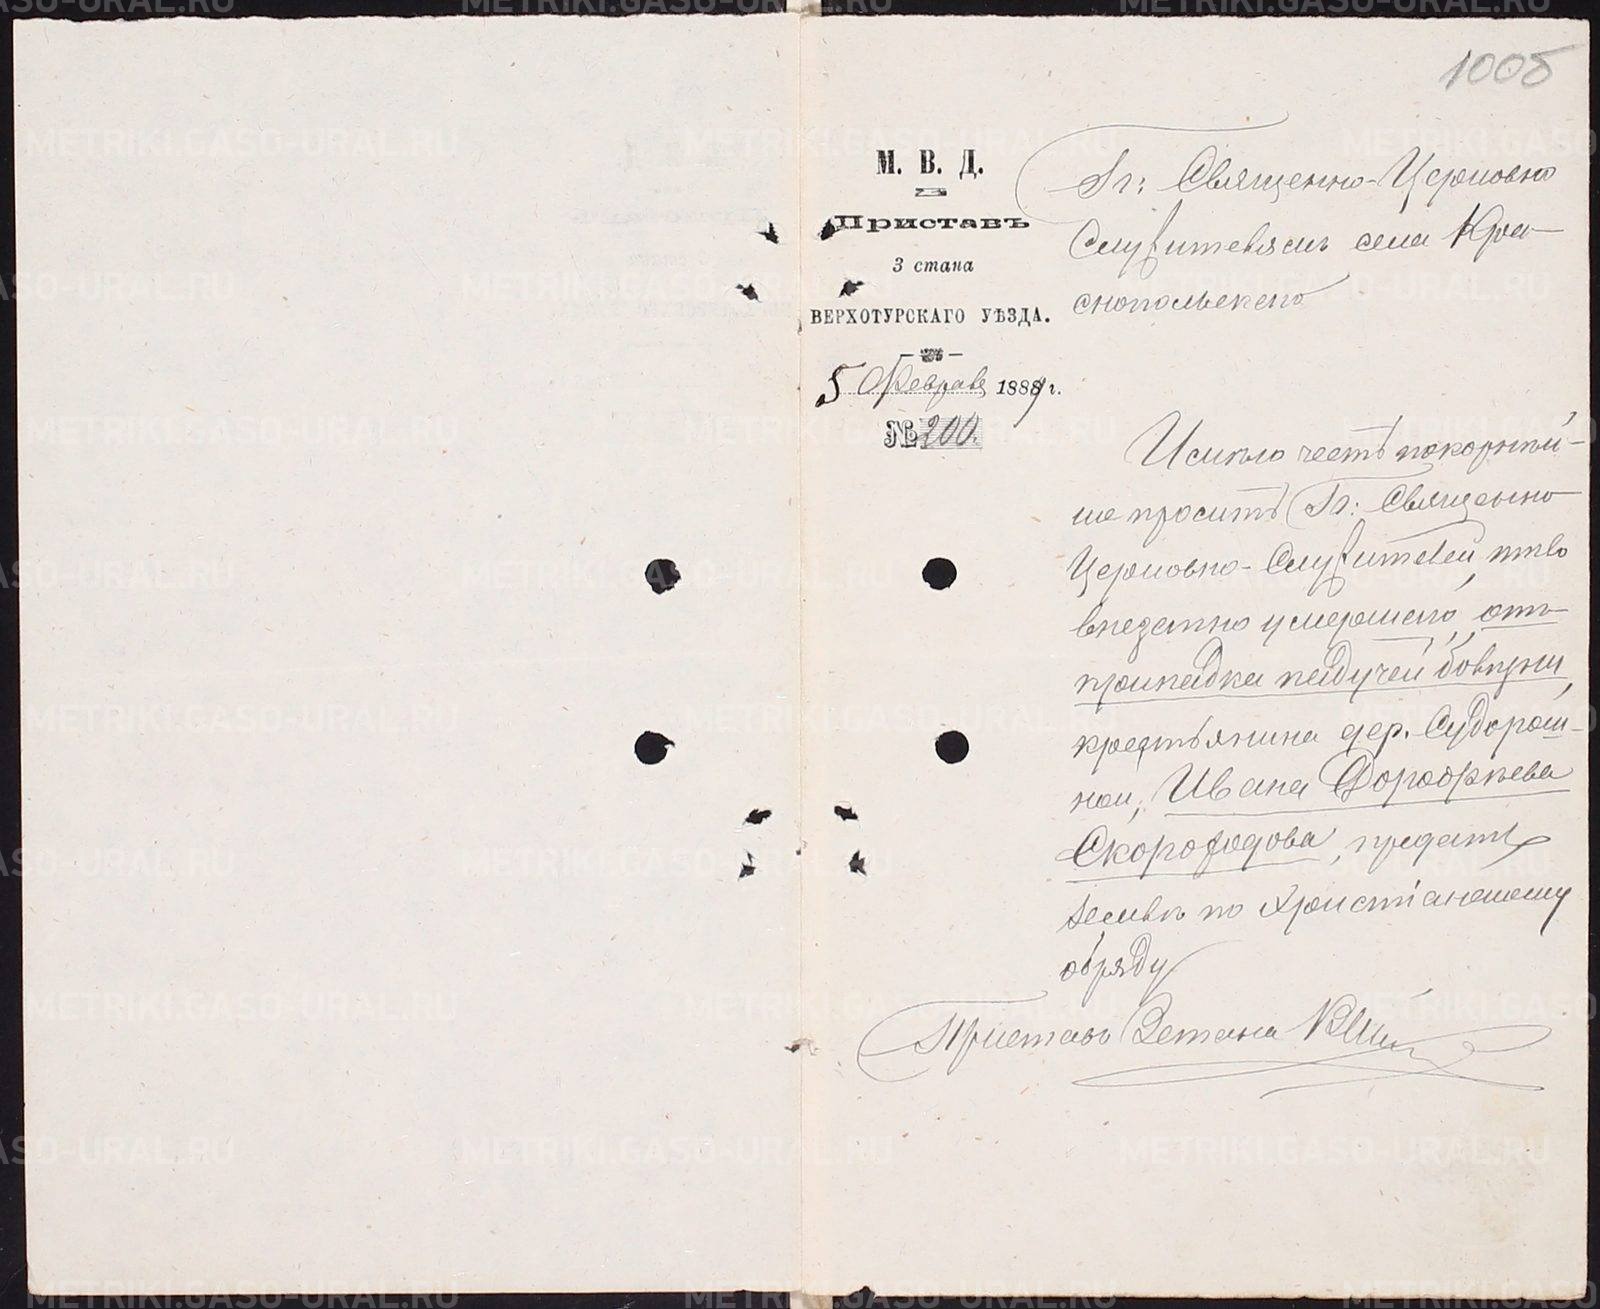 1005
М. В. Д.
Приставъ
3 стана
ВЕРХОТУРСКАГО УѢЗДА.
5 Февраля 1889 г.
№ 200.
Гг: Священно-Церковно
Служителямъ села Кра-
снопольскаго
Имѣю честь покорнѣй-
ше просить Гг: Священно
Церковно-Служителей, тѣло
внезапно умершаго, отъ
припадка падучей болѣзни,
крестьянина дер.
ной, Ивана Дорофѣева
Скороходова, предать
землѣ по христіанскому
обряду
Приставъ 3 стана
METRIKI.GASO-URAL.RU